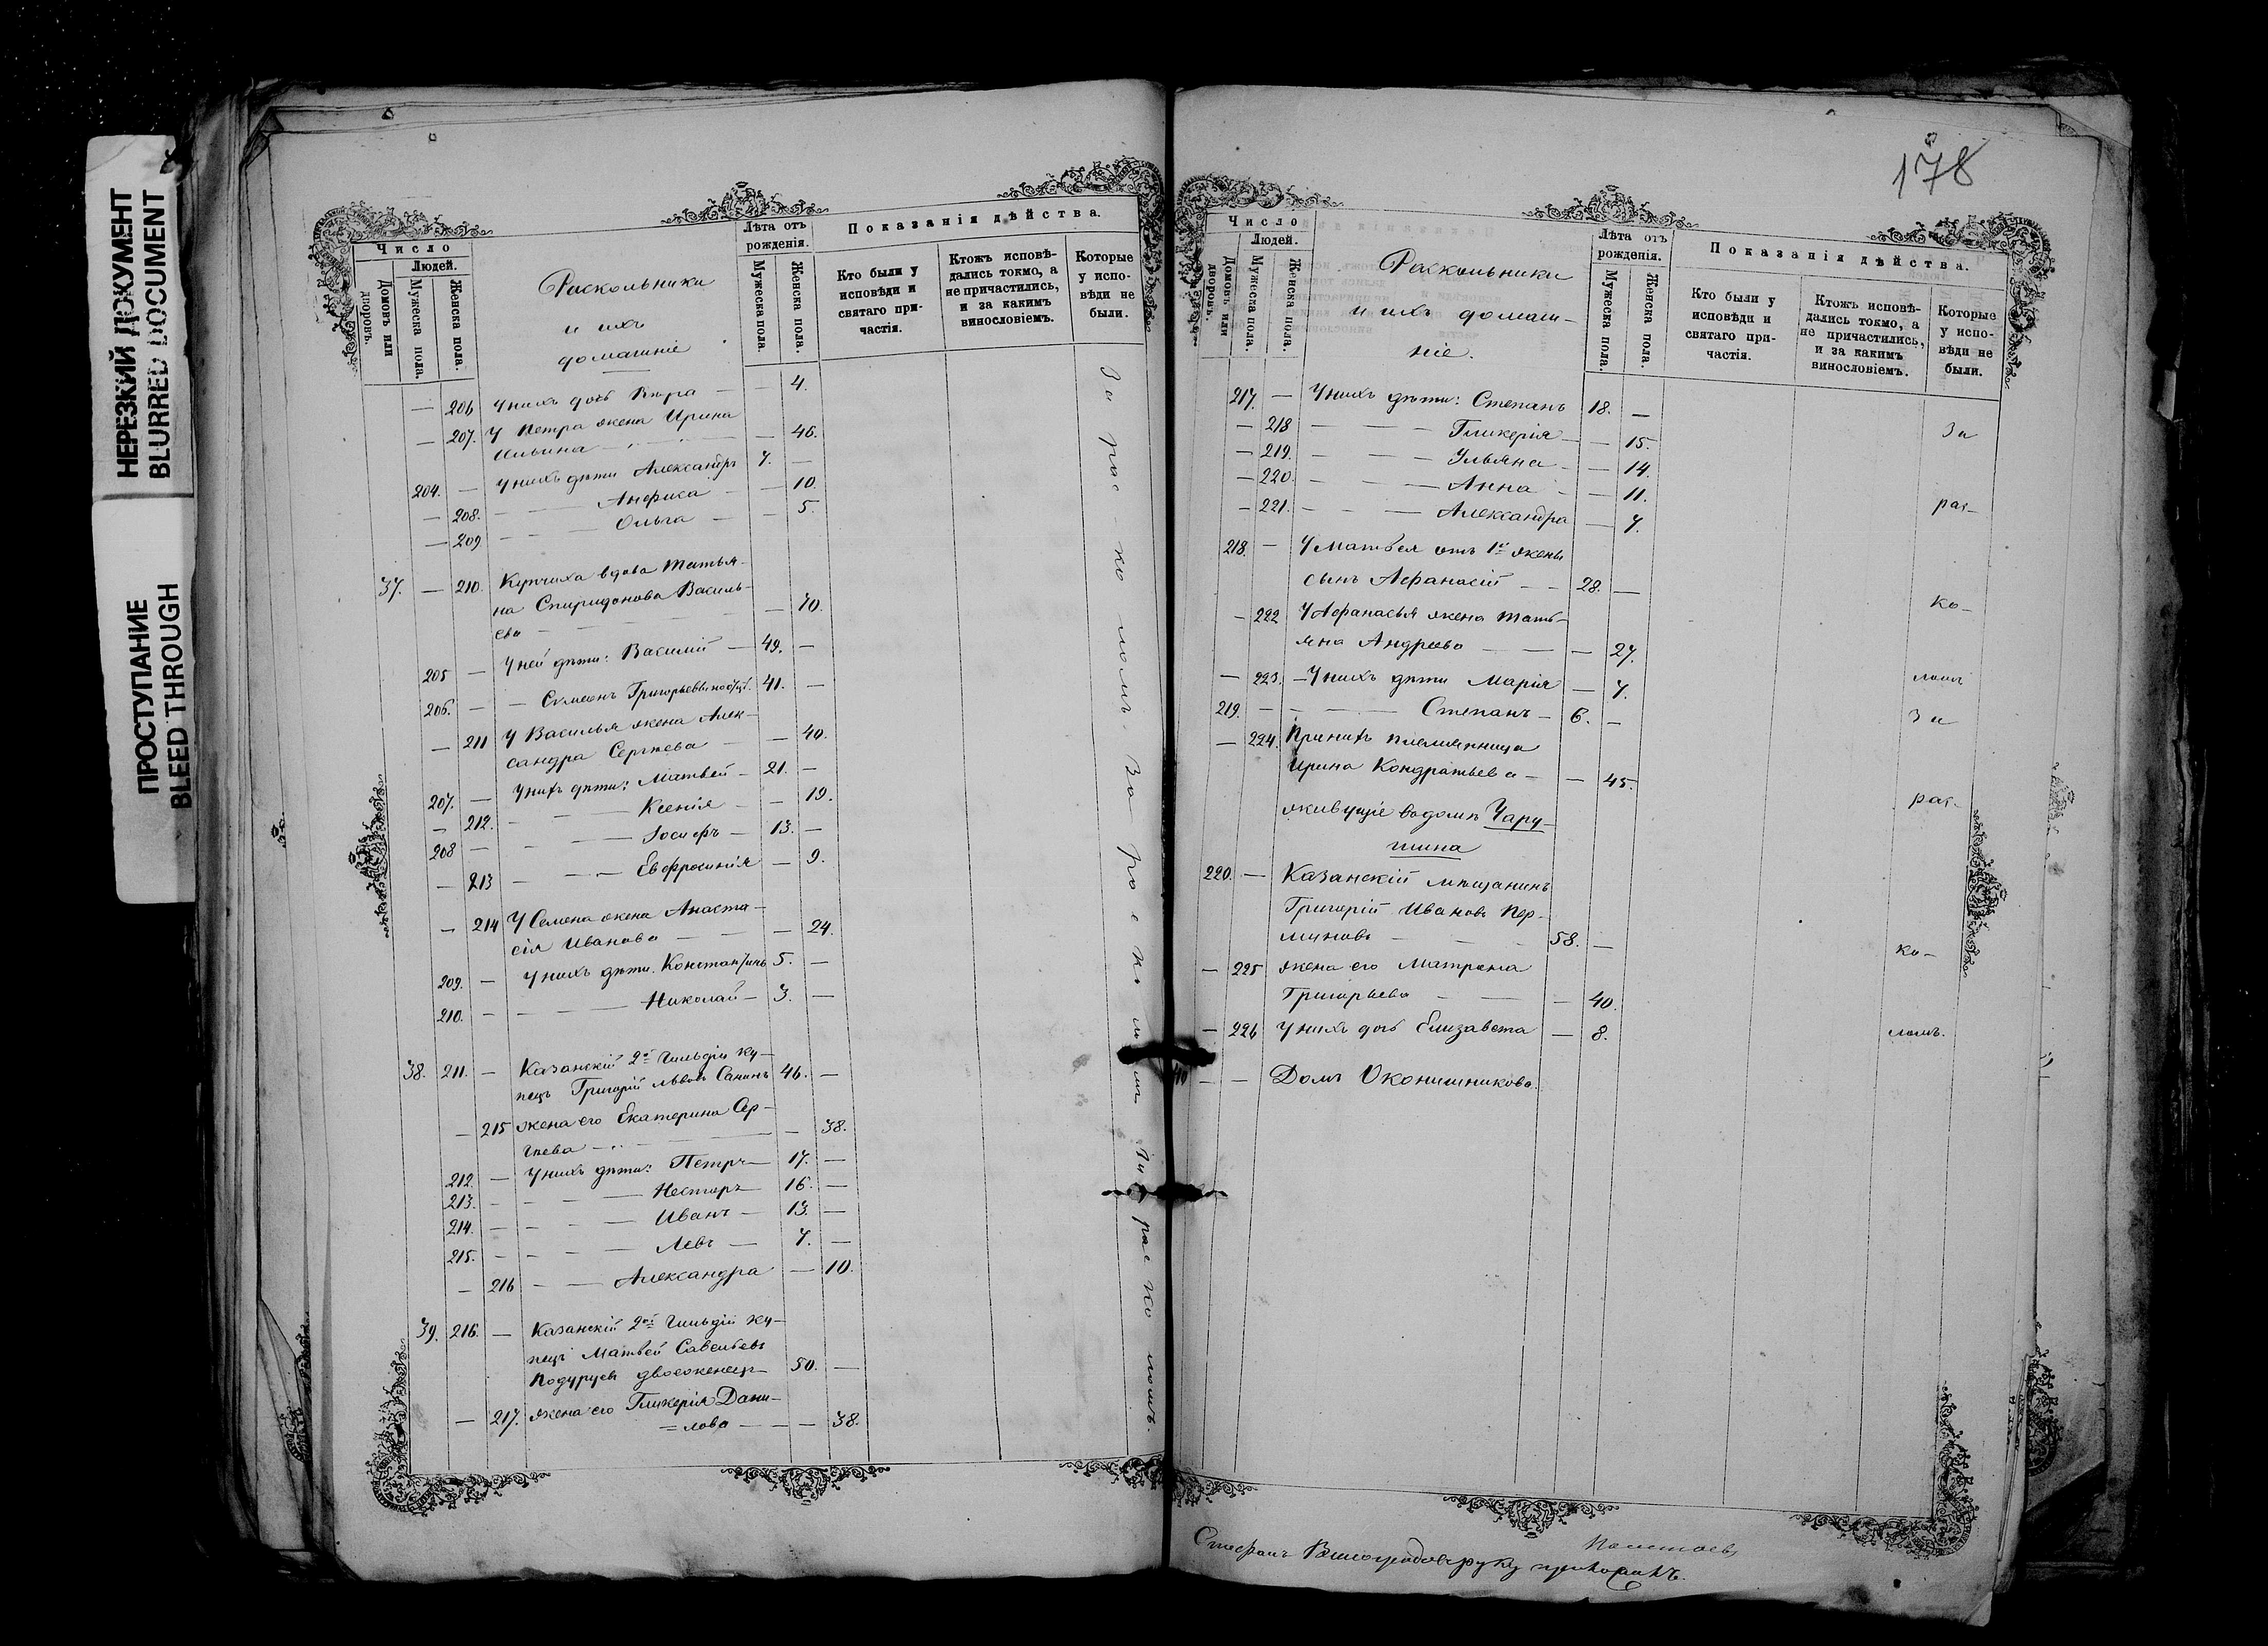 НЕРЕЗКИЙ ДОКУМЕНТ
BLURRED DOCUMENT
ПРОСТУПАНИЕ
BLEED THROUGH
Число
Людей.
Домовъ или дворовъ.
Мужеска пола.
Женска пола.
Раскольники
и ихъ
домашніе
Лѣта отъ рожденія.
Мужеска пола.
Женска пола.
Показанія дѣйства.
Кто были у исповѣди и святаго причастія.
Ктожъ исповѣдались токмо, а не причастились, и за какимъ винословіемъ.
Которые у исповѣди не были.
— 206 У нихъ дочь Кира — — 4.
— 207. У Петра жена Ирина
Ильина — — 46.
204. — У нихъ дѣти Александръ 7. —
— 208. — — Анфиса — — 10.
— 209 — — Ольга — — 5.
37. — 210. Купчиха вдова Татья-
на Спиридонова Василь-
ева — — 70.
205 — У ней дѣти: Василий — 49. —
206. — — Симеонъ Григорьевы 41. —
— 211 У Василья жена Алек-
сандра Сергѣева — — 40.
207. — У нихъ дѣти: Матвей — 21. —
— 212. — — Ксенія — — 19.
208 — — — Іосифъ — 13. —
— 213 — — Евфросинія — 9.
— 214 У Семена жена Анаста-
сія Иванова — — 24.
209. — У нихъ дѣти. Константинъ 5. —
210. — — Николай — 3. —
38. 211. — Казанскій 2й гильдіи ку-
пецъ Григорій Львовъ Санинъ 46. —
— 215 жена его Екатерина Сер-
гѣева — — 38.
212. — У нихъ дѣти: Петръ — 17. —
213. — — — Несторъ — 16. —
214. — — — Иванъ — 13. —
215. — — — Левъ — 7. —
— 216 — — Александра — 10.
39. 216. — Казанскій 2ой гильдіи ку-
пецъ Матвей Савельевъ
Подуруевъ двоеженецъ 50. —
— 217. жена его Гликерія Дани-
=лова — — 38.
За расколомъ. За расколомъ За расколомъ.
178
Число
Людей.
Домовъ или дворовъ.
Мужеска пола.
Женска пола.
Раскольники
и ихъ домаш-
ніе.
Лѣта отъ рожденія.
Мужеска пола.
Женска пола.
Показанія дѣйства.
Кто были у исповѣди и святаго причастія.
Ктожъ исповѣдались токмо, а не причастились, и за какимъ винословіемъ.
Которые у исповѣди не были.
217. — У нихъ дѣти: Степанъ 18. —
— 218 — — — Гликерія — — 15.
— 219. — — — Ульяна — — 14.
— 220. — — — Анна — — 11.
— 221. — — — Александра — 7.
218. — У Матвея отъ 1й жены
сынъ Афанасій — — 28. —
— 222 У Афанасья жена Тать-
яна Андреева — — — 27.
— 223. — У нихъ дѣти Марія — 7.
219. — — — Степанъ — 6. —
— 224. При нихъ племянница
Ирина Кондратьева — — 45.
живущіе въ домѣ Чару-
шина
220. — Казанскій мѣщанинъ
Григорій Ивановъ Пер-
миновъ — — 58. —
— 225 жена его Матрена
Григорьева — — — 40.
— 226 У нихъ дочь Елизавета — 8.
40 — — Домъ Оконишникова.
За
рас-
ко-
ломъ
За
рас-
ко-
ломъ.
Стефанъ руку приложилъ.